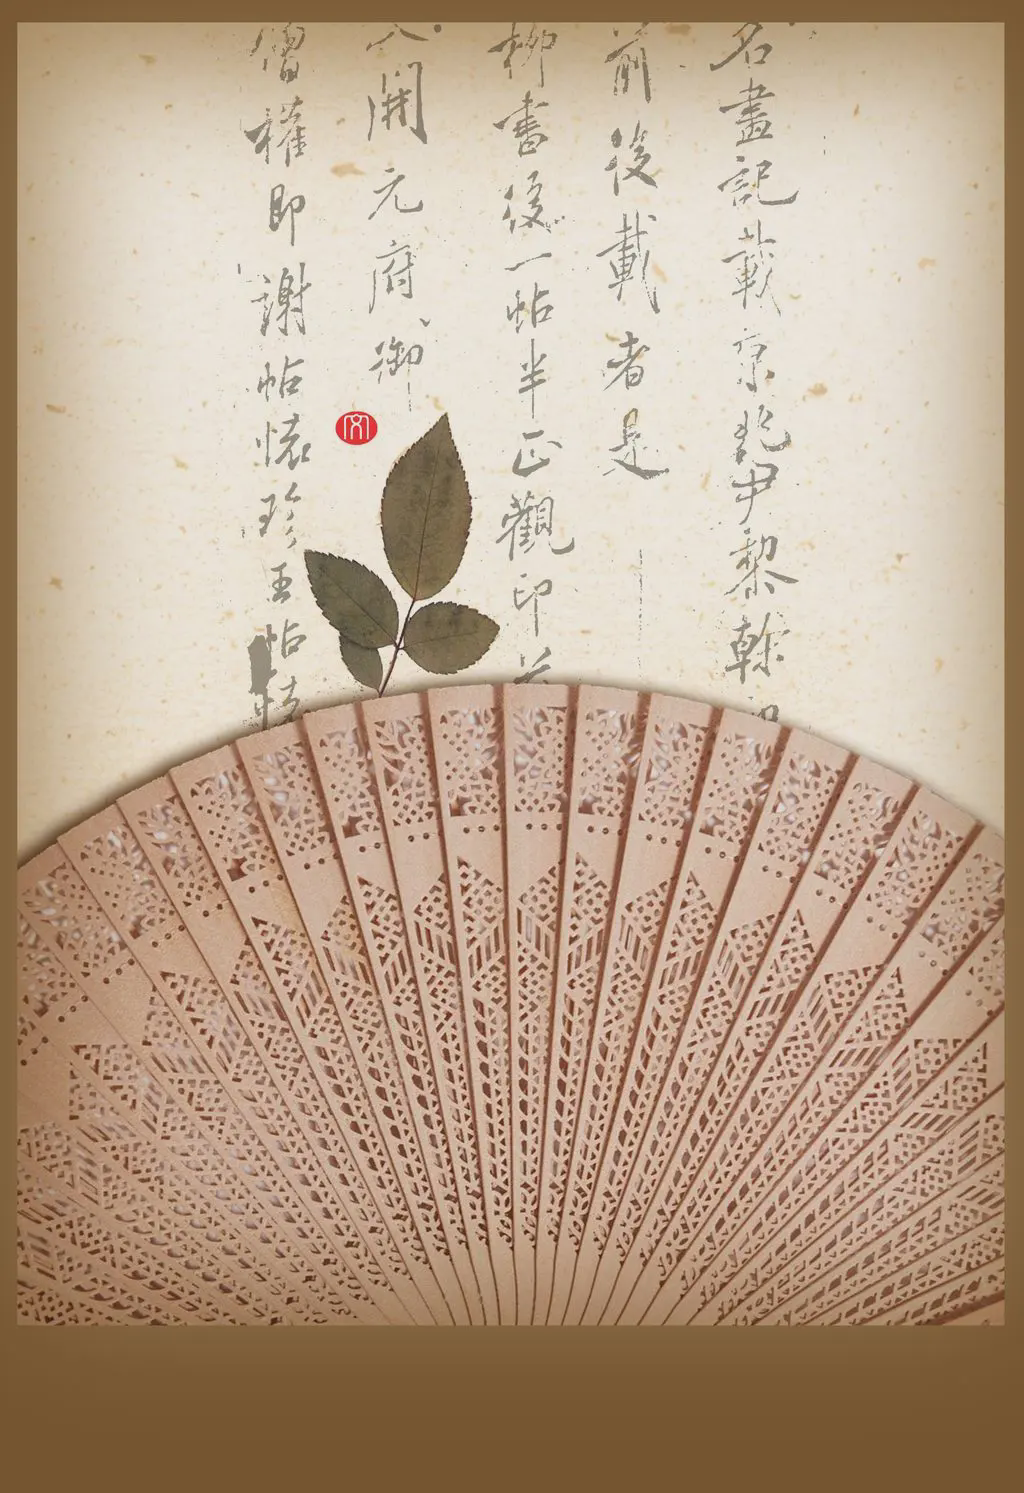 名畫記載京兆尹黎幹
前後載者是
柳書後一帖半正觀印
開元府御
僧權即謝帖懐珍王帖